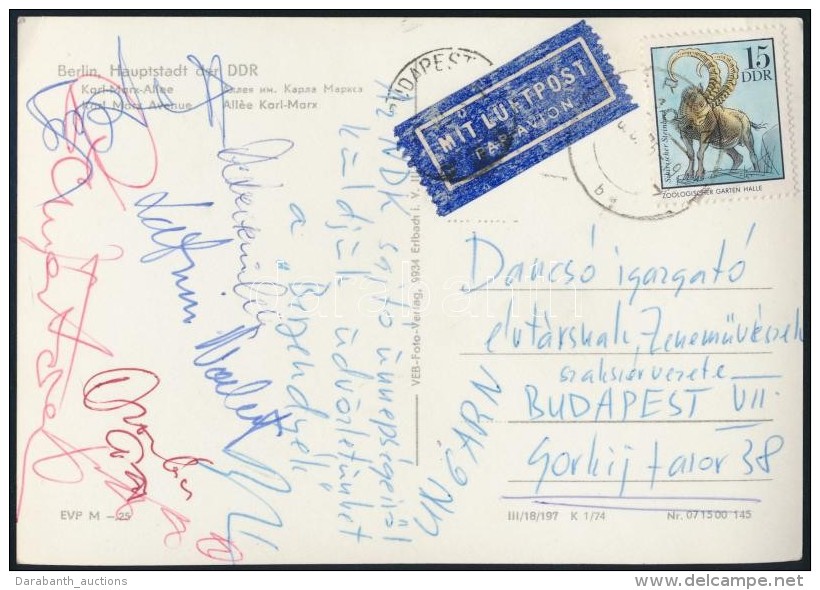 Berlin, Hauptstadt der DDR
Karl-Marx-Allee
Аллея им. Карла Маркса
Karl Marx Avenue
Allée Karl-Marx
BUDAPEST
MIT LUFTPOST
PAR AVION
15
DDR
Sibirischer Steinbock
ZOOLOGISCHER GARTEN HALLE
Az NDK sajtó ünnepségeiről
küldjük üdvözletünket
a "Bergendyék"
VEB-Foto-Verlag, 9934 Erlbach i. V.
Dancsó igazgató
elvtársnak, Zeneművészek
szakszervezete
BUDAPEST VII.
Gorkij fasor 38
UNGARN
EVP M –,25
III/18/197 K 1/74
Nr. 0715 00 145
darabanth
Darabanth_auctions
delcampe.net